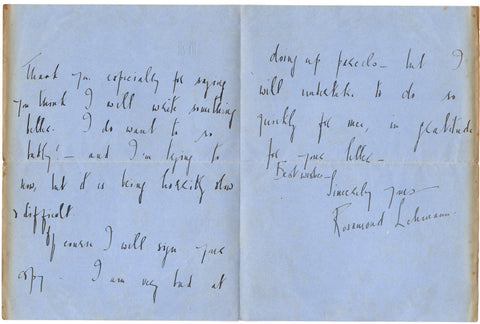 Thank you especially for saying
you think I will write something
better. I do want to so
badly! – and I'm trying to
now, but it is being horribly slow
& difficult.
Of course I will sign your
copy. I am very bad at
doing up parcels – but I
will undertake to do so
quickly for once, in gratitude
for your letter –
Best wishes –
Sincerely yours
Rosamond Lehmann.